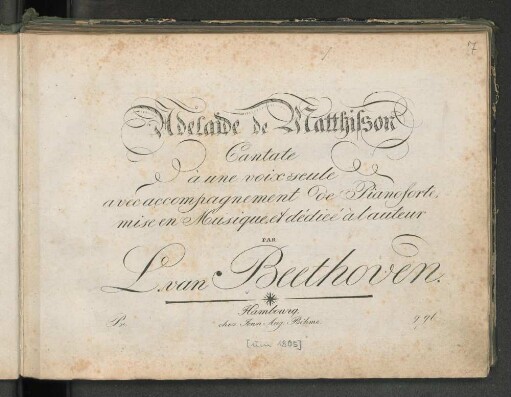 7
Adelaide de Matthisson
Cantate
à une voix seule
avec accompagnement de Pianoforte,
mise en Musique, et dédieé à l'auteur
PAR
L. van Beethoven.
Hambourg,
Pr. chez Jean Aug. Böhme.
[um 1805]